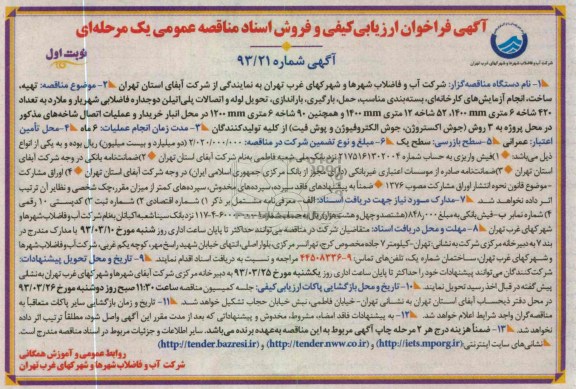 آگهی فراخوان ارزیابی‌کیفی و فروش اسناد مناقصه عمومی یک مرحله‌ای
آگهی شماره ۹۳/۲۱
نوبت اول
شرکت آب و فاضلاب شهرها و شهرکهای غرب تهران
۱- نام دستگاه مناقصه‌گزار: شرکت آب و فاضلاب شهرها و شهرکهای غرب تهران به نمایندگی از شرکت آبفای استان تهران ۲- موضوع مناقصه: تهیه،
ساخت، انجام آزمایش‌های کارخانه‌ای، بسته‌بندی مناسب، حمل، بارگیری، باراندازی، تحویل لوله و اتصالات پلی‌اتیلن دوجداره فاضلابی شهریار و ملارد به تعداد
۴۲۰ شاخه ۶ متری ۱۴۰۰ mm، ۵۲ شاخه ۱۲ متری ۱۴۰۰ mm و همچنین ۹۰ شاخه ۶ متری ۱۲۰۰ mm در محل انبار خریدار و عملیات اتصال شاخه‌های مذکور
در محل پروژه به ۳ روش (جوش اکستروژن، جوش الکتروفیوژن و پوش فیت) از کلیه تولیدکنندگان ۳- مدت زمان انجام عملیات: ۶ ماه ۴- محل تأمین
اعتبار: عمرانی ۵- سطح بازرسی: سطح یک ۶- مبلغ و نوع تضمین شرکت در مناقصه: ۲/۰۲۰/۰۰۰/۰۰۰ (دو میلیارد و بیست میلیون) ریال بوده و به یکی از انواع
ذیل می‌باشد: ۱) فیش واریزی به حساب شماره ۲۱۷۵۱۶۴۱۳۰۲۰۰۴ نزد بانک ملی شعبه فاطمی به‌نام شرکت آبفای استان تهران ۲) ضمانت‌نامه بانکی در وجه شرکت آبفای
استان تهران ۳) ضمانت‌نامه صادره از موسسات اعتباری غیربانکی (دارای مجوز از بانک مرکزی جمهوری اسلامی ایران) در وجه شرکت آبفای استان تهران ۴) اوراق مشارکت
موضوع قانون نحوه انتشار اوراق مشارکت مصوب ۱۳۷۶ ضمناً به پیشنهادهای فاقد سپرده، سپرده‌های مخدوش، سپرده‌های کمتر از میزان مقرر، چک شخصی و نظایر آن ترتیب
اثر داده نخواهد شد. ۷- مدارک مورد نیاز جهت دریافت اسناد: الف- معرفی‌نامه مشتمل بر ذکر ۱) شماره اقتصادی ۲) شماره ثبت ۳) کدپستی ۱۰ رقمی
۴) شماره نمابر ب- فیش بانکی به مبلغ ۸۴۸/۰۰۰ (هشتصد و چهل و هشت هزار) ریال به حساب
شهرکهای غرب تهران ۸- مهلت و محل دریافت اسناد: متقاضیان شرکت در مناقصه می‌توانند حداکثر تا پایان ساعت اداری روز شنبه مورخ ۹۳/۰۳/۱۰ با مدارک مندرج در
بند ۷ به دبیرخانه مرکزی شرکت به نشانی: تهران- کیلومتر ۷ جاده مخصوص کرج، تهرانسر مرکزی، بلوار اصلی، انتهای خیابان شهید راسخ مهر، کوچه یکم غربی، شرکت آب و فاضلاب شهرها
و شهرکهای غرب تهران، ساختمان شماره یک، تلفن‌های تماس: ۹-۴۴۵۰۸۳۳۶ مراجعه و نسبت به دریافت اسناد اقدام نمایند. ۹- تاریخ و محل تحویل پیشنهادات:
شرکت‌کنندگان می‌توانند پیشنهادات خود را حداکثر تا پایان ساعت اداری روز یکشنبه مورخ ۹۳/۰۳/۲۵ به دبیرخانه مرکزی شرکت آبفای شهرها و شهرکهای غرب تهران به‌نشانی
پیش گفته در قبال اخذ رسید تحویل نمایند. ۱۰- تاریخ و محل بازگشایی پاکات ارزیابی‌کیفی: جلسه کمیسیون مناقصه ساعت ۱۱:۳۰ صبح روز دوشنبه مورخ ۹۳/۰۳/۲۶
در محل دفتر ذیحساب آبفای استان تهران به نشانی تهران- خیابان فاطمی، نبش خیابان حجاب تشکیل خواهد شد. ۱۱- تاریخ و زمان بازگشایی سایر پاکات متعاقباً به
مناقصه‌گران واجد شرایط اعلام خواهد شد. ۱۲- به پیشنهادات فاقد امضاء، مشروط، مخدوش و پیشنهاداتی که بعد از مدت مقرر این آگهی واصل شود، مطلقاً ترتیب اثر داده
نخواهد شد. ۱۳- ضمناً هزینه درج هر ۲ مرحله چاپ آگهی مربوط به این مناقصه به‌عهده برنده می‌باشد. سایر اطلاعات و جزئیات مربوط در اسناد مناقصه مندرج است.
نشانی‌های سایت اینترنتی: (http://iets.mporg.ir) و (http://tender.nww.co.ir) و (http://tender.bazresi.ir)
روابط عمومی و آموزش همگانی
شرکت آب و فاضلاب شهرها و شهرکهای غرب تهران